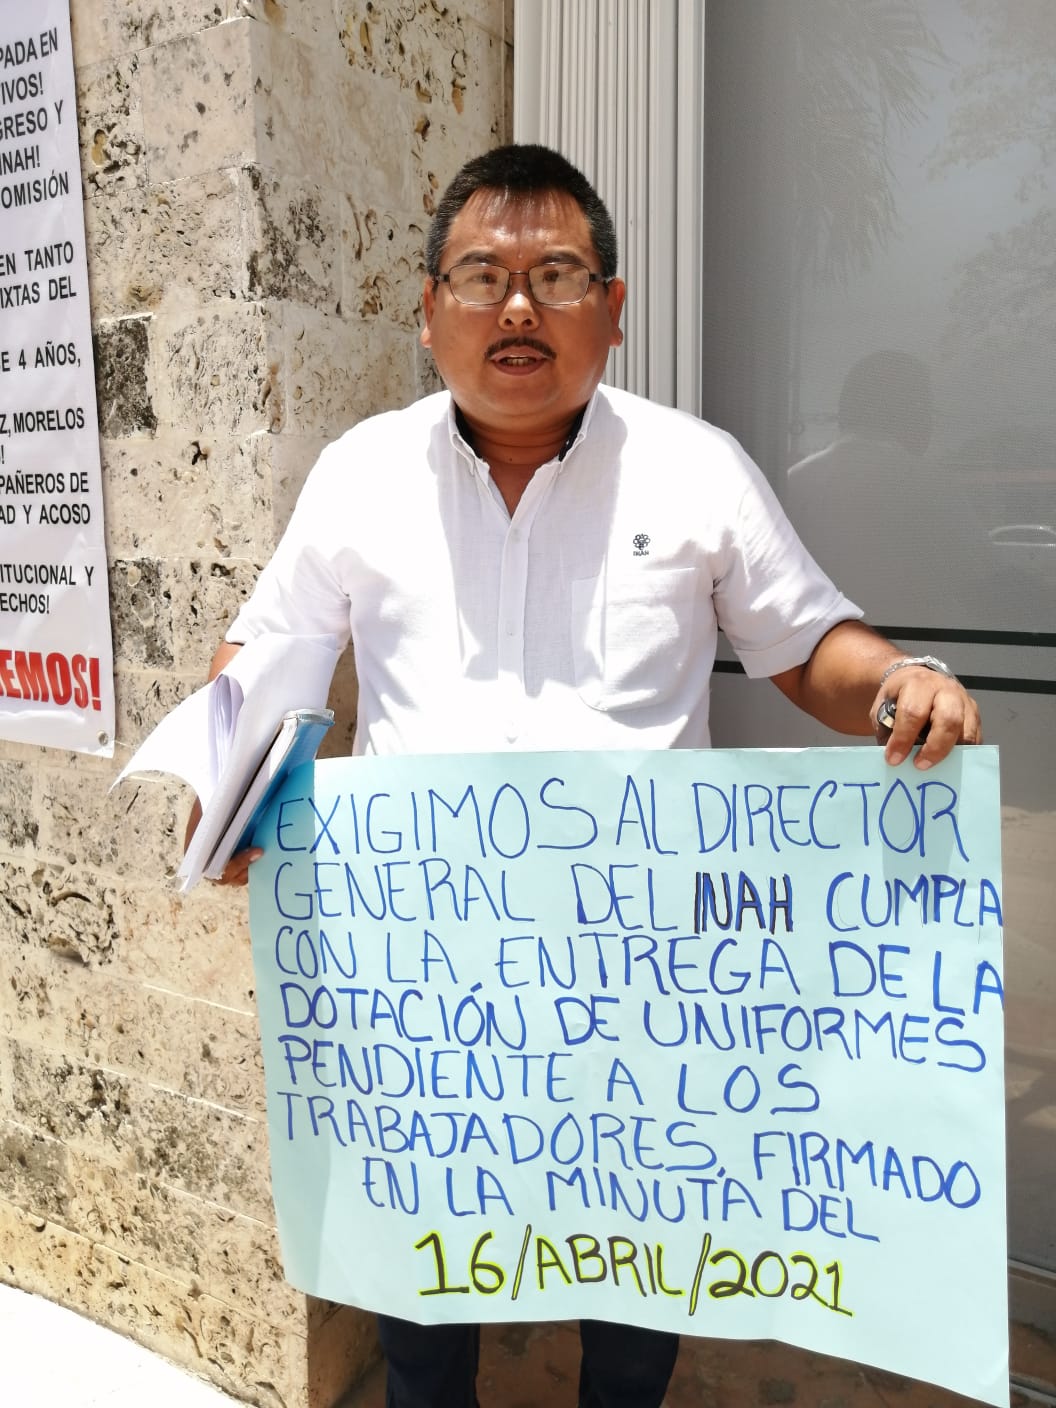 PADA EN
IVOS!
GRESO Y
INAH!
OMISIÓN
EN TANTO
IXTAS DEL
E 4 AÑOS,
Z, MORELOS
!
PAÑEROS DE
AD Y ACOSO
ITUCIONAL Y
ECHOS!
EMOS!
INAH
EXIGIMOS AL DIRECTOR
GENERAL DEL INAH CUMPLA
CON LA ENTREGA DE LA
DOTACIÓN DE UNIFORMES
PENDIENTE A LOS
TRABAJADORES, FIRMADO
EN LA MINUTA DEL
16/ABRIL/2021